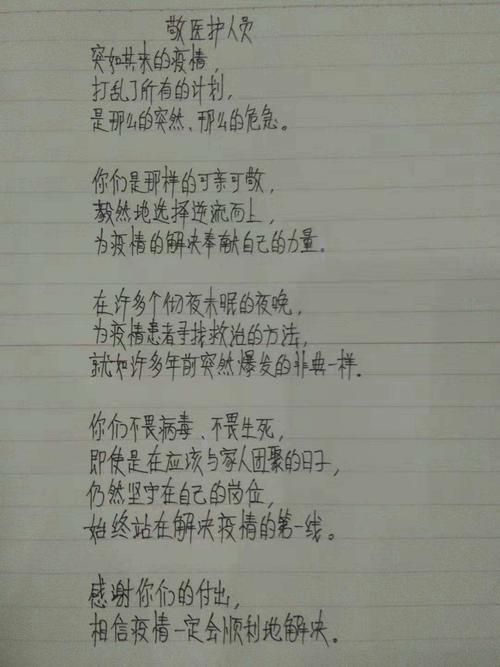 敬医护人员
突如其来的疫情，
打乱了所有的计划，
是那么的突然、那么的危急。
你们是那样的可亲可敬，
毅然地选择逆流而上，
为疫情的解决奉献自己的力量。
在许多个彻夜未眠的夜晚，
为疫情患者寻找救治的方法，
就如许多年前突然爆发的非典一样。
你们不畏病毒、不畏生死，
即使是在应该与家人团聚的日子，
仍然坚守在自己的岗位，
始终站在解决疫情的第一线。
感谢你们的付出，
相信疫情一定会顺利地解决。